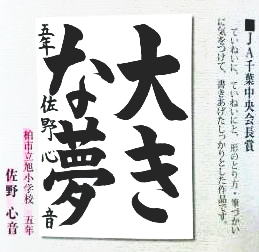 ■JA千葉中央会長賞
ていねいに、ていねいにと、形のとり方・筆づかい
に気をつけて、書きあげたしっかりとした作品です。
大き
な夢
五年 佐野心音
柏市立旭小学校 五年
佐野 心音